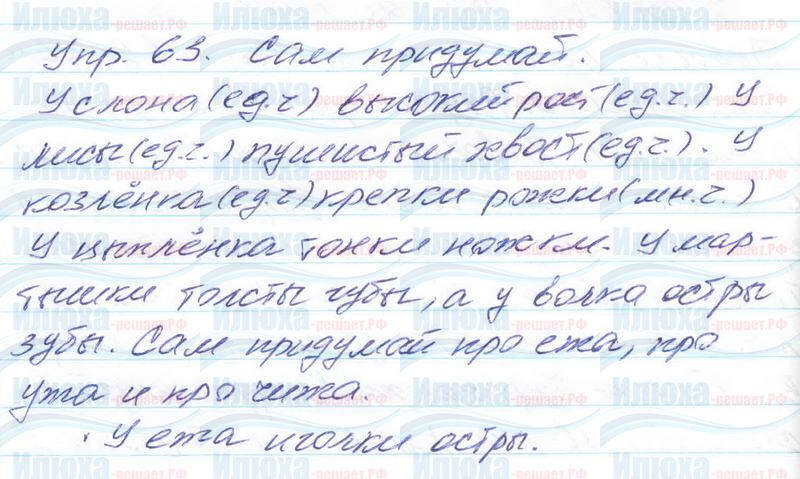 Упр. 63. Сам придумай.
У слона (ед.ч) высокий рост (ед.ч.) У
лисы (ед.ч.) пушистый хвост (ед.ч.). У
козлёнка (ед.ч) крепки рожки (мн.ч.)
У цыплёнка тонки ножки. У мар-
тышки толсты губы, а у волка остры
зубы. Сам придумай про ежа, про
ужа и про чижа.
У ежа иголки остры.